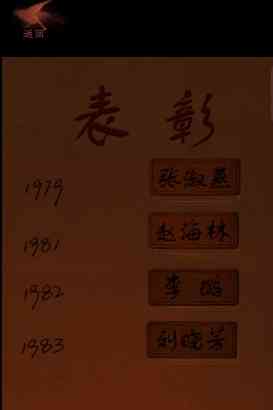 返回
表彰
1979 张淑燕
1981 赵海林
1982 李璐
1983 刘晓芳